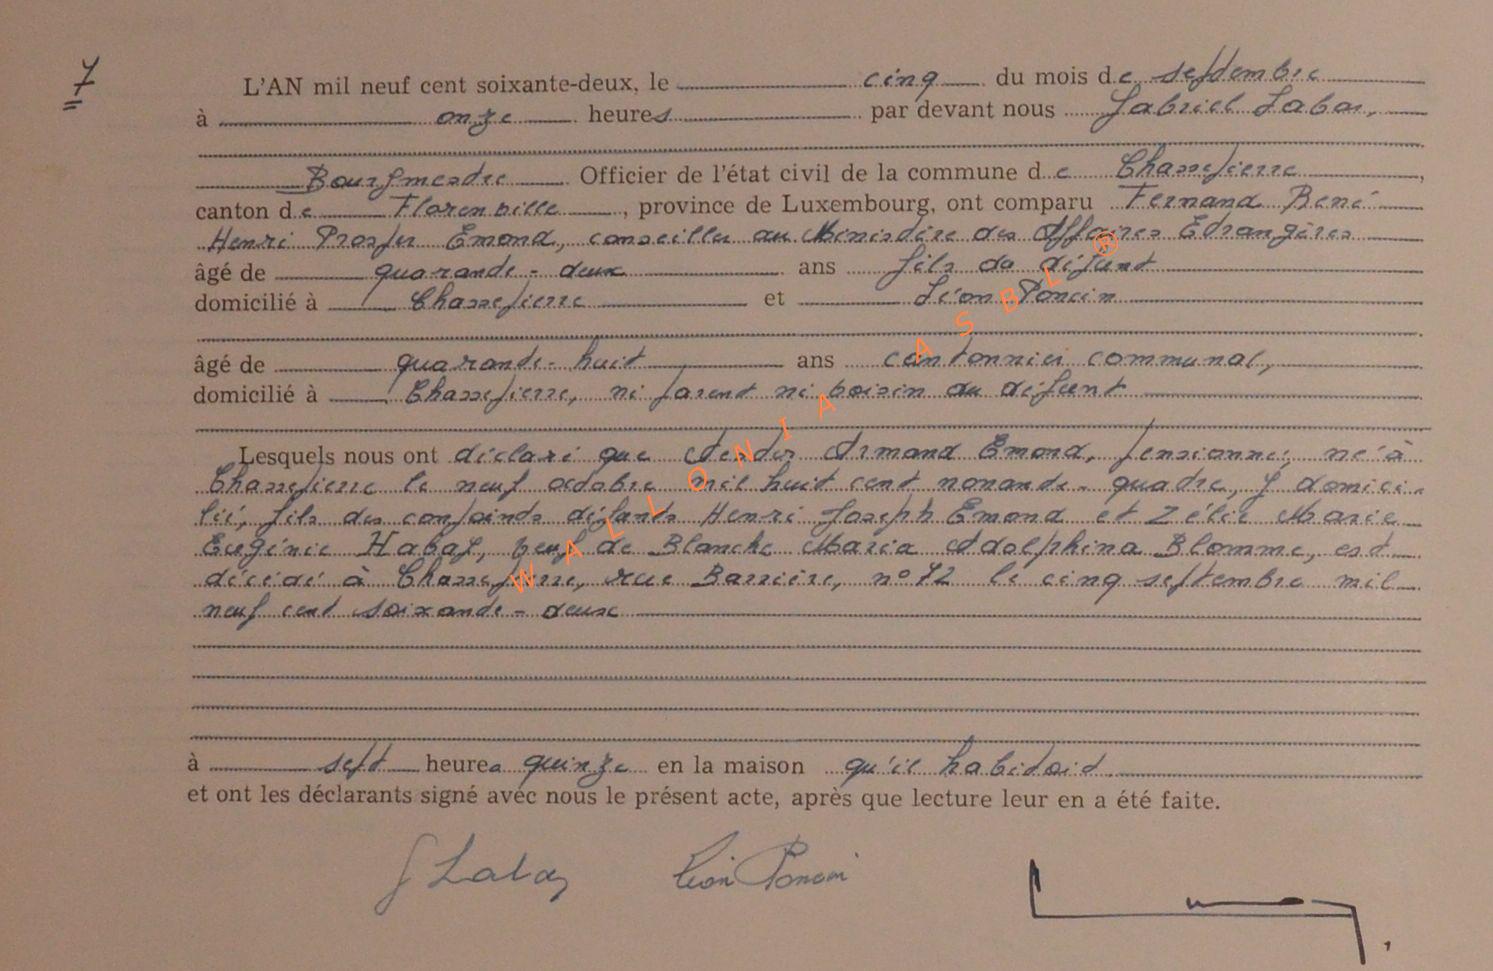 7
L'AN mil neuf cent soixante-deux, le cinq du mois de septembre
à onze heures par devant nous Gabriel Labar,
Bourgmestre Officier de l'état civil de la commune de Chassepierre,
canton de Florenville, province de Luxembourg, ont comparu Fernand René
Henri Prosper Emond, conseiller au Ministère des Affaires Etrangères
âgé de quarante-deux ans fils du défunt
domicilié à Chassepierre et Léon Poncin
âgé de quarante-huit ans cantonnier communal,
domicilié à Chassepierre, ni parent ni voisin du défunt
Lesquels nous ont déclaré que Nestor Armand Emond, pensionné, né à
Chassepierre le neuf octobre mil huit cent nonante-quatre, y domici-
lié, fils des conjoints défunts Henri Joseph Emond et Zélie Marie
Eugénie Habay, veuf de Blanche Maria Adolphina Blomme, est
décédé à Chassepierre, rue Barrière, n° 42 le cinq septembre mil
neuf cent soixante-deux
à sept heures quinze en la maison qu'il habitait
et ont les déclarants signé avec nous le présent acte, après que lecture leur en a été faite.
Léon Poncin
WALLONIA ASBL ®